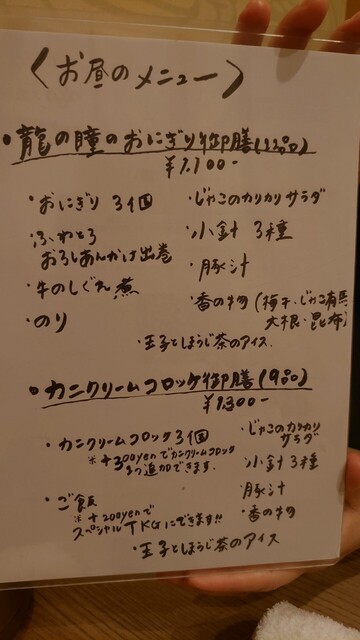 〈お昼のメニュー〉
・龍の瞳のおにぎり御膳(12品)
¥1,100-
・おにぎり 3個
・ふわとろ
おろしあんかけ出巻
・牛のしぐれ煮
・のり
・じゃこのカリカリサラダ
・小鉢 3種
・豚汁
・香の物(梅干・じゃこ有馬
大根・昆布)
・玉子とほうじ茶のアイス.
・カニクリームコロッケ御膳(9品)
¥1,300-
・カニクリームコロッケ3個
※+300yenでカニクリームコロッケ
1つ追加できます.
・ご飯
※+200yenで
スペシャルTKGにできます!!
・じゃこのカリカリ
サラダ
・小鉢 3種
・豚汁
・香の物
・玉子とほうじ茶のアイス